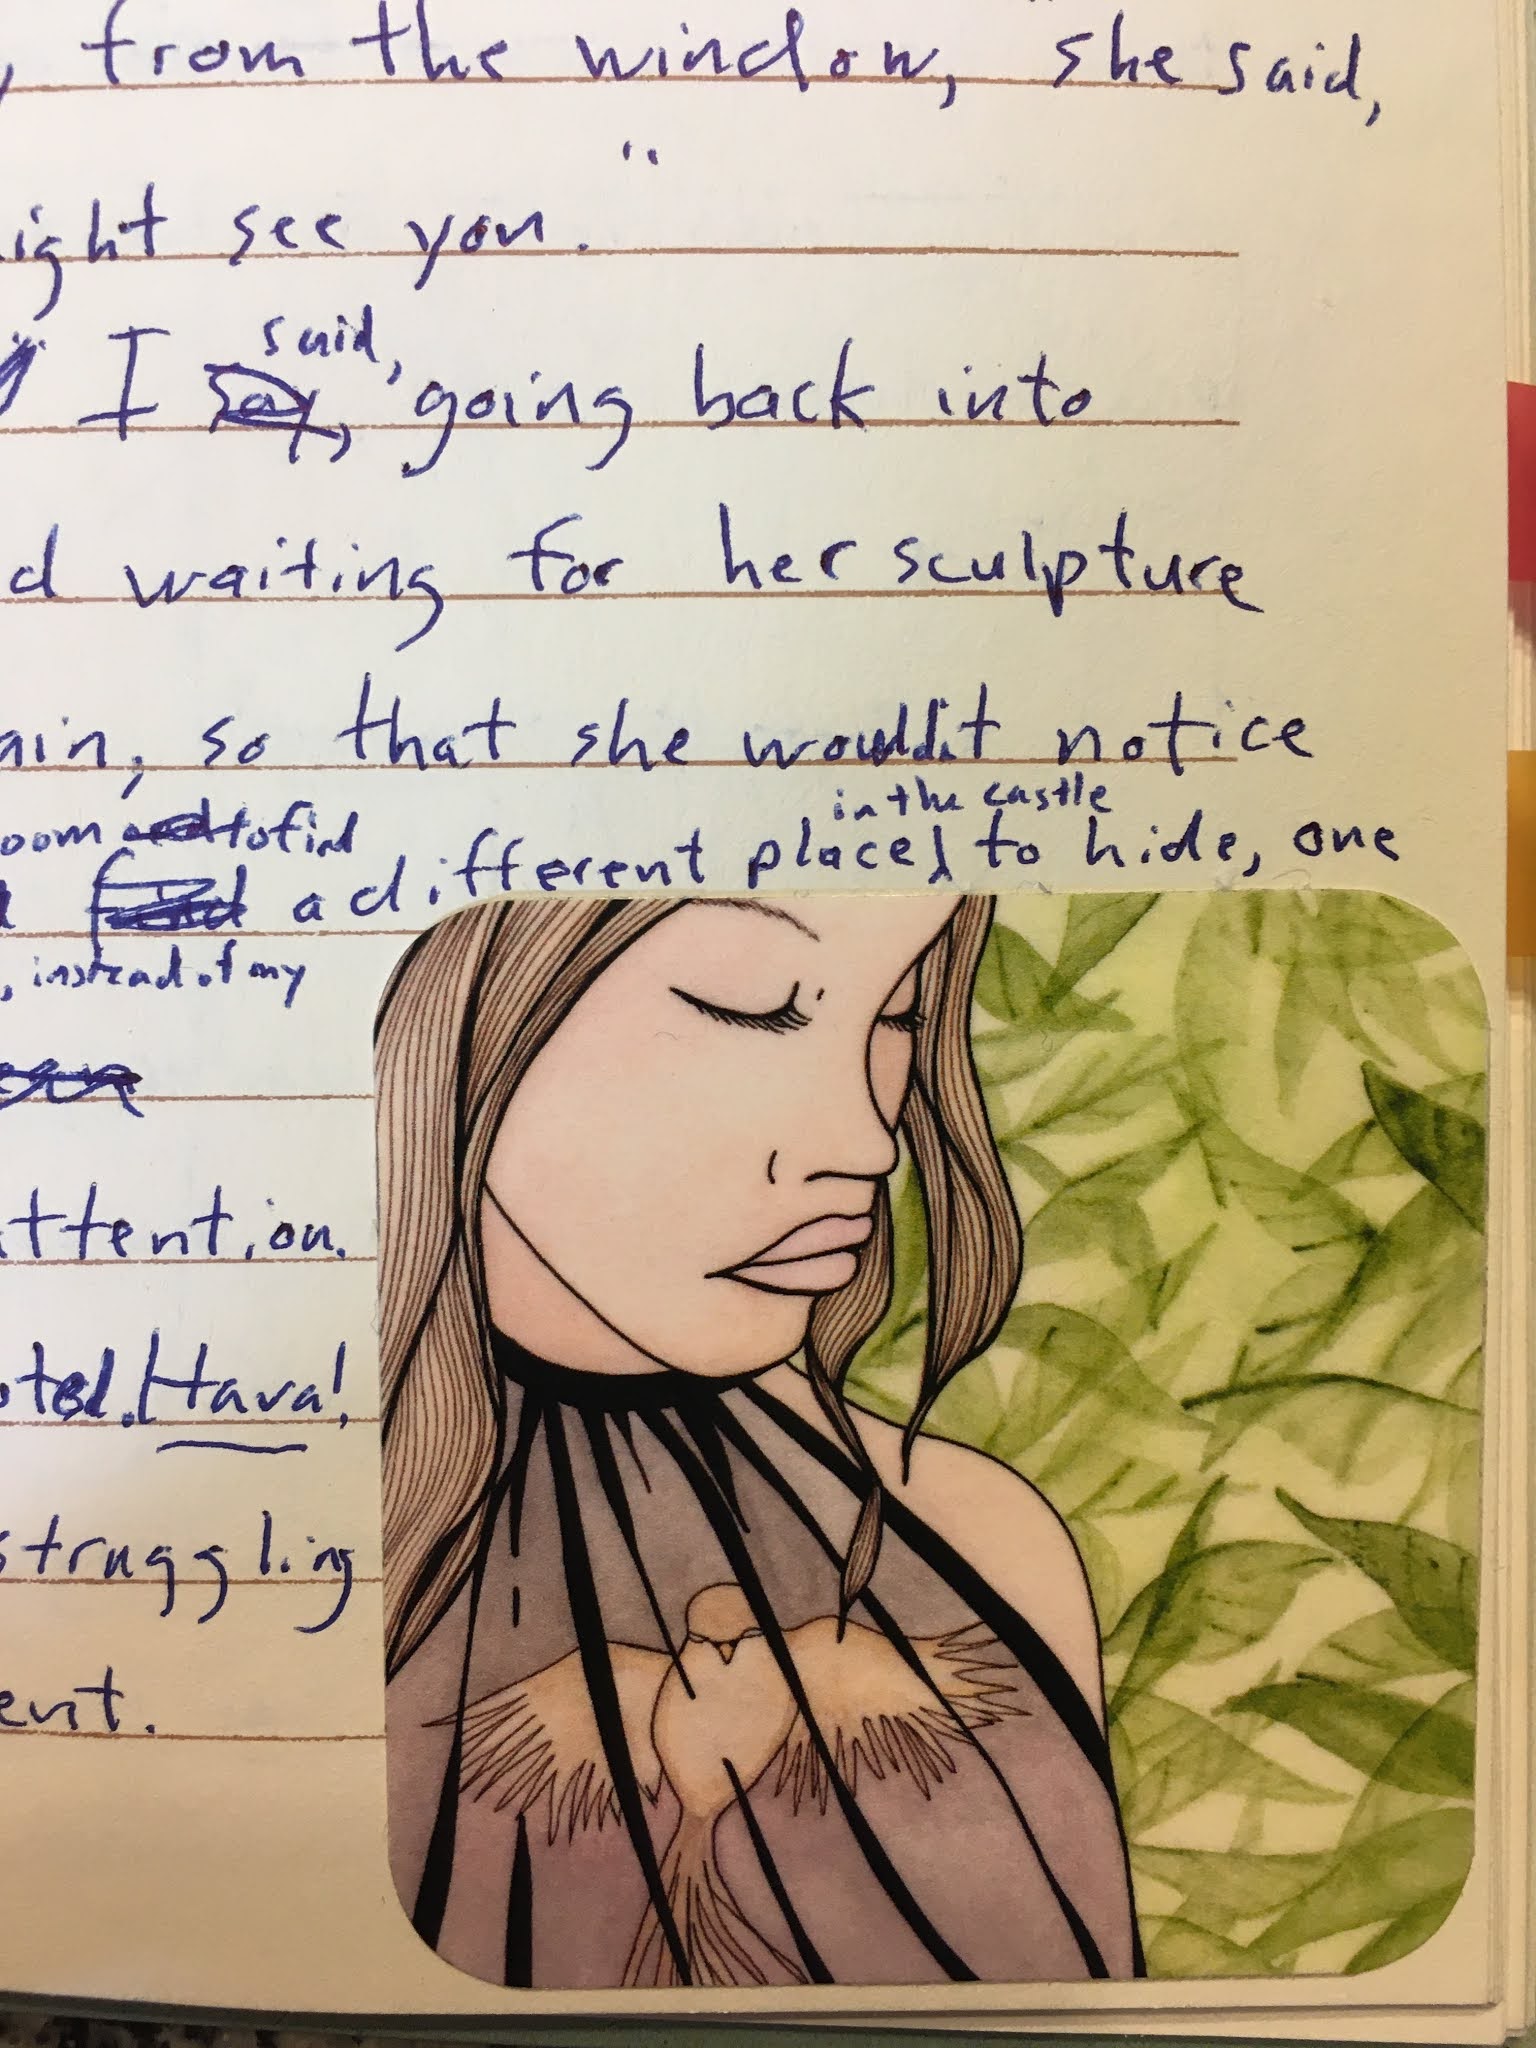 from the window," she said,
see you."
said,
I say, going back into
waiting for her sculpture
so that she wouldn't notice
in the castle
to find
a different place to hide, one
find
, instead of my
Hava!
struggling